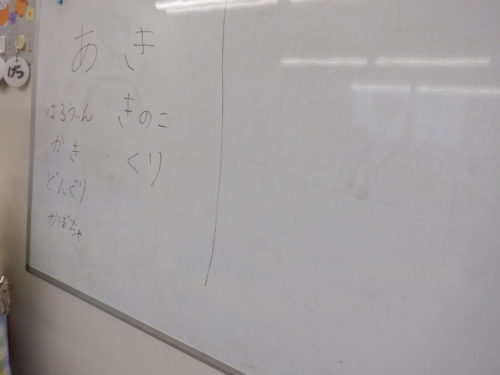 あき
はろうぃん
かき
どんぐり
かぼちゃ
きのこ
くり